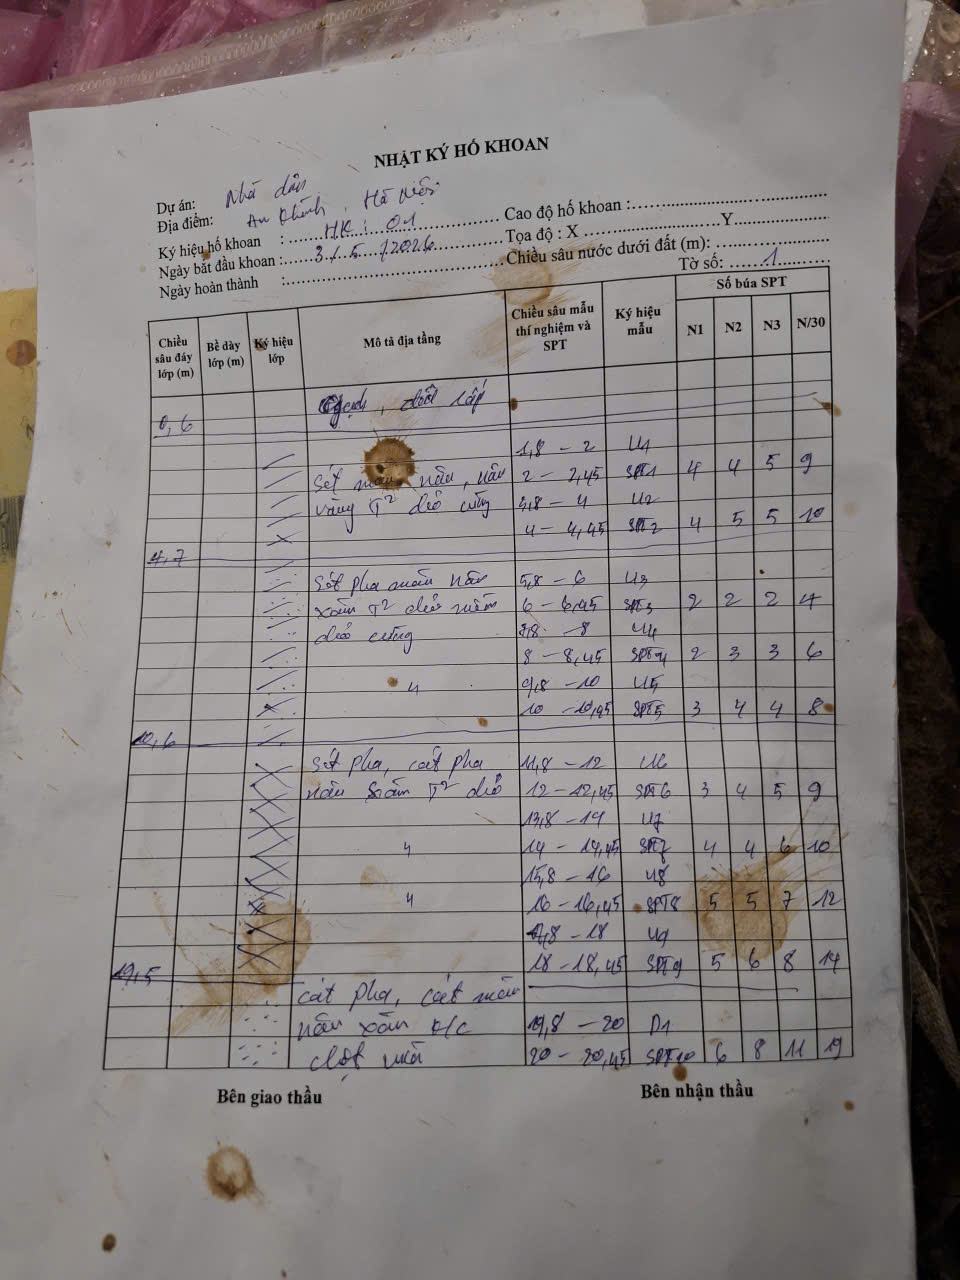 NHẬT KÝ HỐ KHOAN
Dự án: Nhà dân
Địa điểm: An Khánh, Hà Nội
Ký hiệu hố khoan : HK: 01 Cao độ hố khoan :
Ngày bắt đầu khoan : 3/5/2026 Tọa độ : X Y
Ngày hoàn thành : Chiều sâu nước dưới đất (m):
Tờ số: 1
Chiều sâu đáy lớp (m) Bề dày lớp (m) Ký hiệu lớp Mô tả địa tầng Chiều sâu mẫu thí nghiệm và SPT Ký hiệu mẫu Số búa SPT
N1 N2 N3 N/30
gạch, đất lấp
0,6
1,8 - 2 U1
Sét màu nâu, nâu 2 - 2,45 SPT1 4 4 5 9
vàng T² dẻo cứng 3,8 - 4 U2
4 - 4,45 SPT2 4 5 5 10
4,7
Sét pha màu nâu 5,8 - 6 U3
xám T² dẻo mềm 6 - 6,45 SPT3 2 2 2 4
dẻo cứng 7,8 - 8 U4
8 - 8,45 SPT4 2 3 3 6
" 9,8 - 10 U5
10 - 10,45 SPT5 3 4 4 8
10,6
Sét pha, cát pha 11,8 - 12 U6
nâu xám T² dẻo 12 - 12,45 SPT6 3 4 5 9
13,8 - 14 U7
" 14 - 14,45 SPT7 4 4 6 10
15,8 - 16 U8
" 16 - 16,45 SPT8 5 5 7 12
17,8 - 18 U9
18 - 18,45 SPT9 5 6 8 14
19,5
cát pha, cát màu
nâu xám K/c 19,8 - 20 D1
chặt vừa 20 - 20,45 SPT10 6 8 11 19
Bên giao thầu Bên nhận thầu